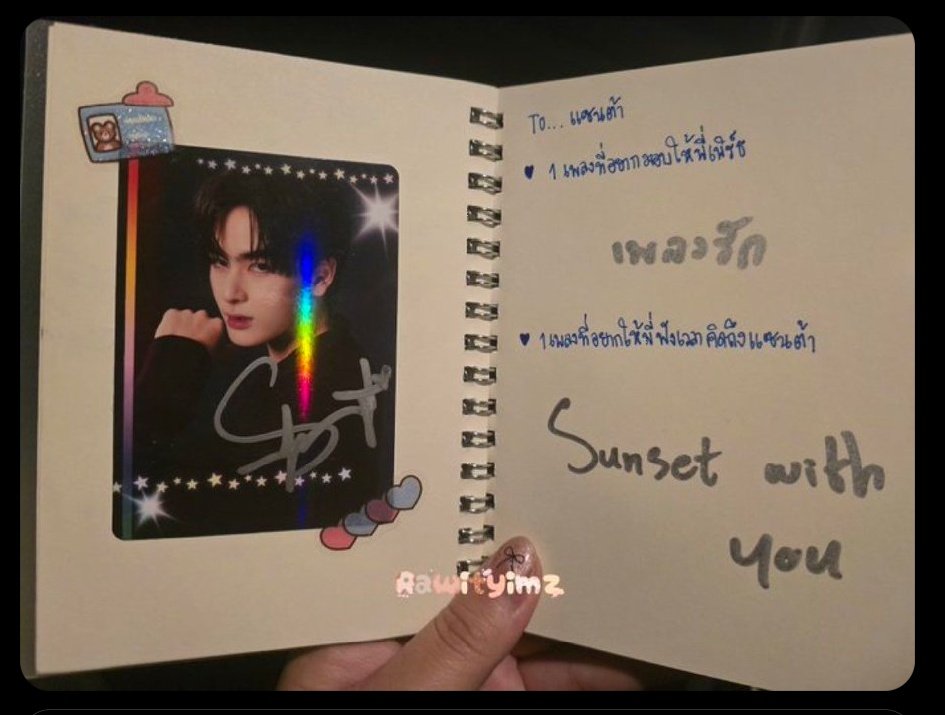 To... แซนต้า
♥ 1 เพลงที่อยากมอบให้พี่เนิร์ธ
เพลงรัก
♥ 1 เพลงที่อยากให้พี่ฟังเวลาคิดถึงแซนต้า
Sunset with
you
Aawityimz